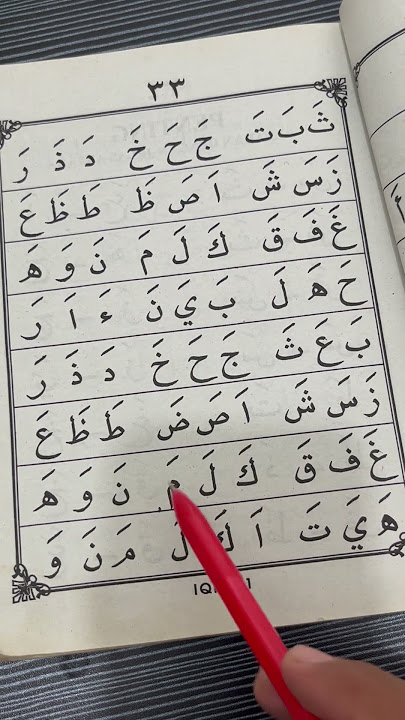 ٣٣
ثَ بَ تَ جَ حَ خَ دَ ذَ رَ
زَ سَ شَ اَ صَ ظَ طَ ظَ عَ
غَ فَ قَ كَ لَ مَ نَ وَ هَ
حَ هَ لَ بَ يَ نَ ءَ اَ رَ
بَ عَ ثَ جَ حَ خَ دَ ذَ رَ
زَ سَ شَ اَ صَ ضَ طَ ظَ عَ
غَ فَ قَ كَ لَ مَ نَ وَ هَ
هَ يَ تَ اَ كَ لَ مَ نَ وَ